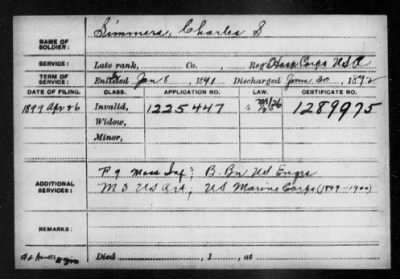 NAME OF SOLDIER: Simmers, Charles S
SERVICE: Late rank, Co. , Reg Hosp Corps U S A
TERM OF SERVICE: Enlisted Jan 8, 1891 Discharged June 30, 1892
DATE OF FILING. CLASS. APPLICATION NO. LAW. CERTIFICATE NO.
1899 Apr 26 Invalid, 1225447 1289975
Widow,
Minor,
ADDITIONAL SERVICES: F 9 Mass Inf; B. Bn US Engrs
M 3 US Art; US Marine Corps (1899-1900)
REMARKS:
Died , 1 , at